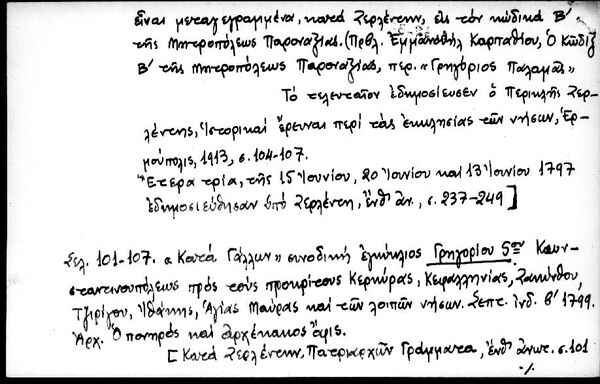 εἶναι μεταγεγραμμένα, κατά Ζερλέντην, εἰς τόν κώδικα Β′
τῆς Μητροπόλεως Παροναξίας. (Πρβλ. Ἐμμανουήλ Καρπαθίου, Ὁ Κῶδιξ
Β′ τῆς Μητροπόλεως Παροναξίας, περ. «Γρηγόριος Παλαμᾶς»
Τό τελευταῖον ἐδημοσίευσεν ὁ Περικλῆς Ζερ-
λέντης, Ἱστορικαί ἔρευναι περί τάς ἐκκλησίας τῶν νήσων, Ἑρ-
μούπολις, 1913, σ. 104-107.
Ἕτερα τρία, τῆς 15 Ἰουνίου, 20 Ἰουνίου καί 13 Ἰουνίου 1797
ἐδημοσιεύθησαν ὑπό Ζερλέντη, ἔνθ' ἀν., σ. 237-249]
Σελ. 101-107. «Κατά Γάλλων» συνοδική ἐγκύκλιος Γρηγορίου 5ου Κων-
σταντινουπόλεως πρός τούς προκρίτους Κερκύρας, Κεφαλληνίας, Ζακύνθου,
Τζιρίγου, Ἰθάκης, Ἁγίας Μαύρας καί τῶν λοιπῶν νήσων. Σεπτ. ἰνδ. β′ 1799.
Ἀρχ. Ὁ πονηρός καί ἀρχέκακος ὄφις.
[Κατά Ζερλέντην, Πατριαρχῶν Γράμματα, ἔνθ' ἀνωτ. σ. 101
./.